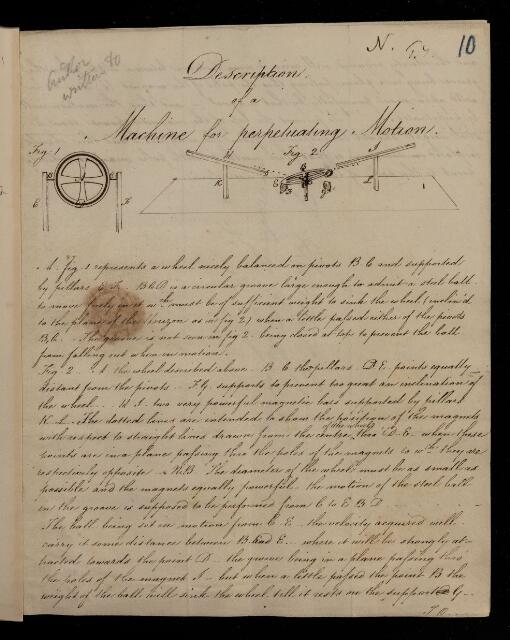 N. 
10
Author
written to
Description
of a
Machine for perpetuating Motion.
Fig. 1
Fig. 2
A. fig 1 represents a wheel nicely balanced on pivots B C and supported
by pillars E F. BCD is a circular groove large enough to admit a steel ball
to move freely in it wch must be of sufficient weight to sink the wheel (inclin'd
to the plane of the horizon as in fig 2) when a little passed either of the pivots
B, C. The groove is not seen in fig 2 - being closed at top to prevent the ball
from falling out when in motion.
Fig. 2. A the wheel described above. B C the pillars D E. points equally
distant from the pivots - F G. supports to prevent too great an inclination of
the wheel. H I. two very powerful magnetic bars supported by pillars
K - L. The dotted lines are intended to show the position of the magnets
with respect to straight lines drawn from the centre of the wheel thro' D. E. when these
points are in a plane passing thro the poles of the magnets to wch they are
respectively opposite - N.B. The diameter of the wheel must be as small as
possible and the magnets equally powerful. the motion of the steel ball
in the groove is supposed to be performed from C to E B D
The ball being set in motion from C. E - the velocity acquired will
carry it some distance between B and E - where it will be strongly at-
tracted towards the point D - the groove being in a plane passing thro'
the poles of the magnet I - but when a little passed the point B the
weight of the ball will sink the wheel till it rests on the support G -